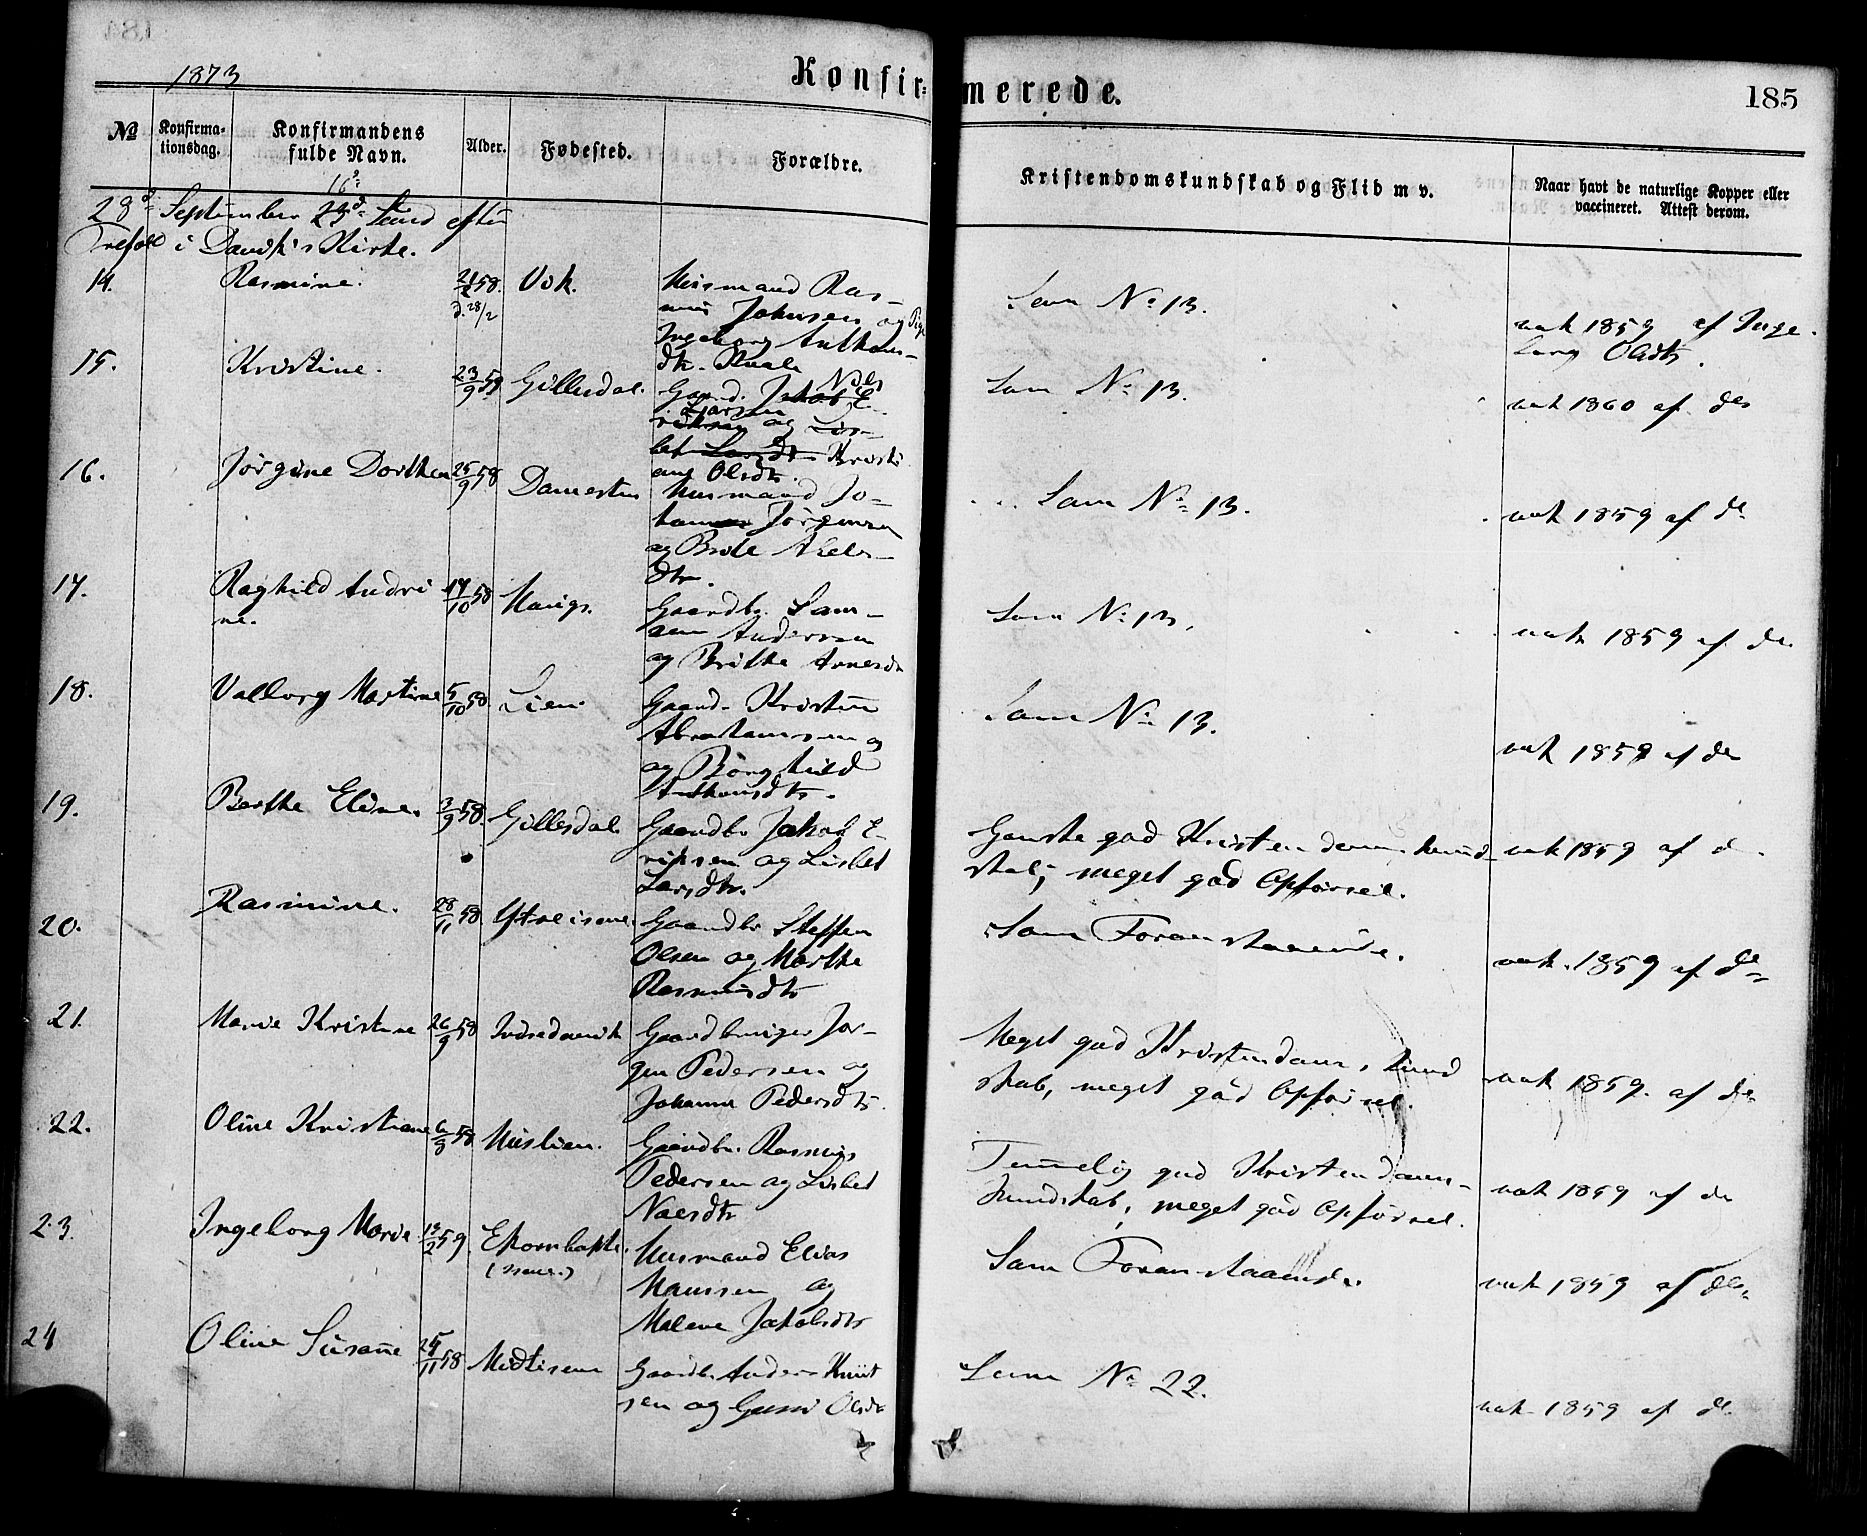 1873
Konfir-
merede.
185
No
Konfirma-
tionsdag.
Konfirmandens
fulde Navn.
Alder.
Fødested.
Forældre.
Kristendomskundskab og Flid m v.
Naar havt de naturlige Kopper eller
vaccineret. Attest derom.
16d
28d September Sønd efter
Trefol i Davik's Kirke.
14.
Rasmine.
21/2 58.
d. 28/2
Vik.
Husmand Ras-
mus Johnsen og Pige
Ingeborg Anthons-
dtr.
Som No 13.
vak 1859 af Inge-
borg Olsdtr.
15.
Kristine.
23/9 58
Gillesdal.
Gaardbr. Jakob E-
Nils
Larsen
riksen og Lis-
bet Larsdtr. Kristi
ane Olsdtr.
Som No 13.
vak 1860 af do
16.
Jørgine Dorthea
25/9 58
Damesten
Husmand Jo-
han Jørgensen
og Brite Abels-
dtr.
Som No 13.
vak 1859 af do
17.
Raghild Andri
ne.
17/10 58
Haugs.
Gaardbr. Sam-
son Andersen
og Brithe Arnesdtr
Som No 13.
vak 1859 af do
18.
Valborg Martine
5/10 58
Lien
Gaardbr. Kristen
Abrahamsen og
og Borghild
Anthonsdtr.
Som No 13.
vak 1859 af do
19.
Berthe Eline.
3/9 58.
Gillesdal.
Gaardbr Jakob E-
riksen og Lisbet
Larsdtr.
Ganske god Kristendomskund-
skab, meget god Opførsel.
vak 1859 af do
20.
Rasmine.
28/11 58
Ytreisene.
Gaardbr Steffen
Olsen og Marthe
Rasmusdtr
Som Foranstaaende.
vak. 1859 af do
21.
Marie Kristine
26/9 58
Indredavik
Gaardbruger Jør-
gen Pedersen og
Johanne Pedersdtr.
Meget god Kristendomskund
skab, meget god Opførsel.
vak 1859. af do
22.
Oline Kristiane
6/9 58
Huslien.
Gaardbr. Rasmus
Pedersen og Lisbet
Naesdtr
Temmelig god Kristendoms-
kundskab, meget god Opførsel.
vak 1859 af do
23.
Ingeborg Marie
13/2 59.
Ekornbakke.
Husmand Elias
Hansen og
Malene Jakobsdtr
Som Foranstaaende.
vak 1859 af do
24
Oline Susanne
25/11 58
Midtisene
Gaardbr. Anders Knut
sen og Guri Olsdtr
Som No 22.
vak 1859 af do